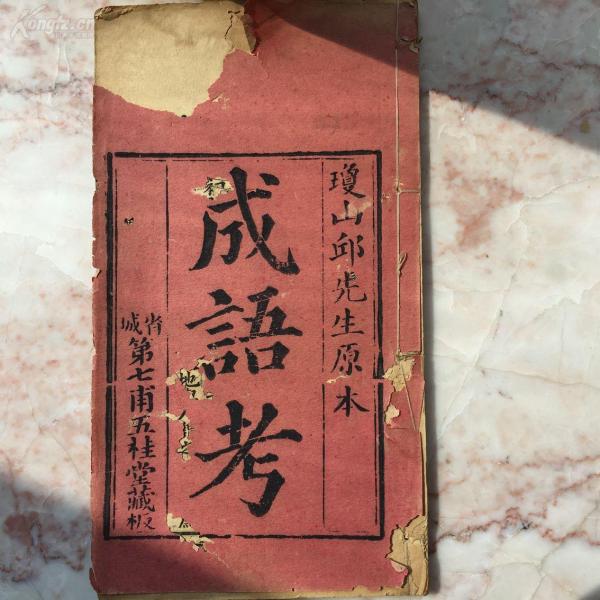 瓊山邱先生原本
成語考
省城第七甫五桂堂藏板
Kongfz.cn